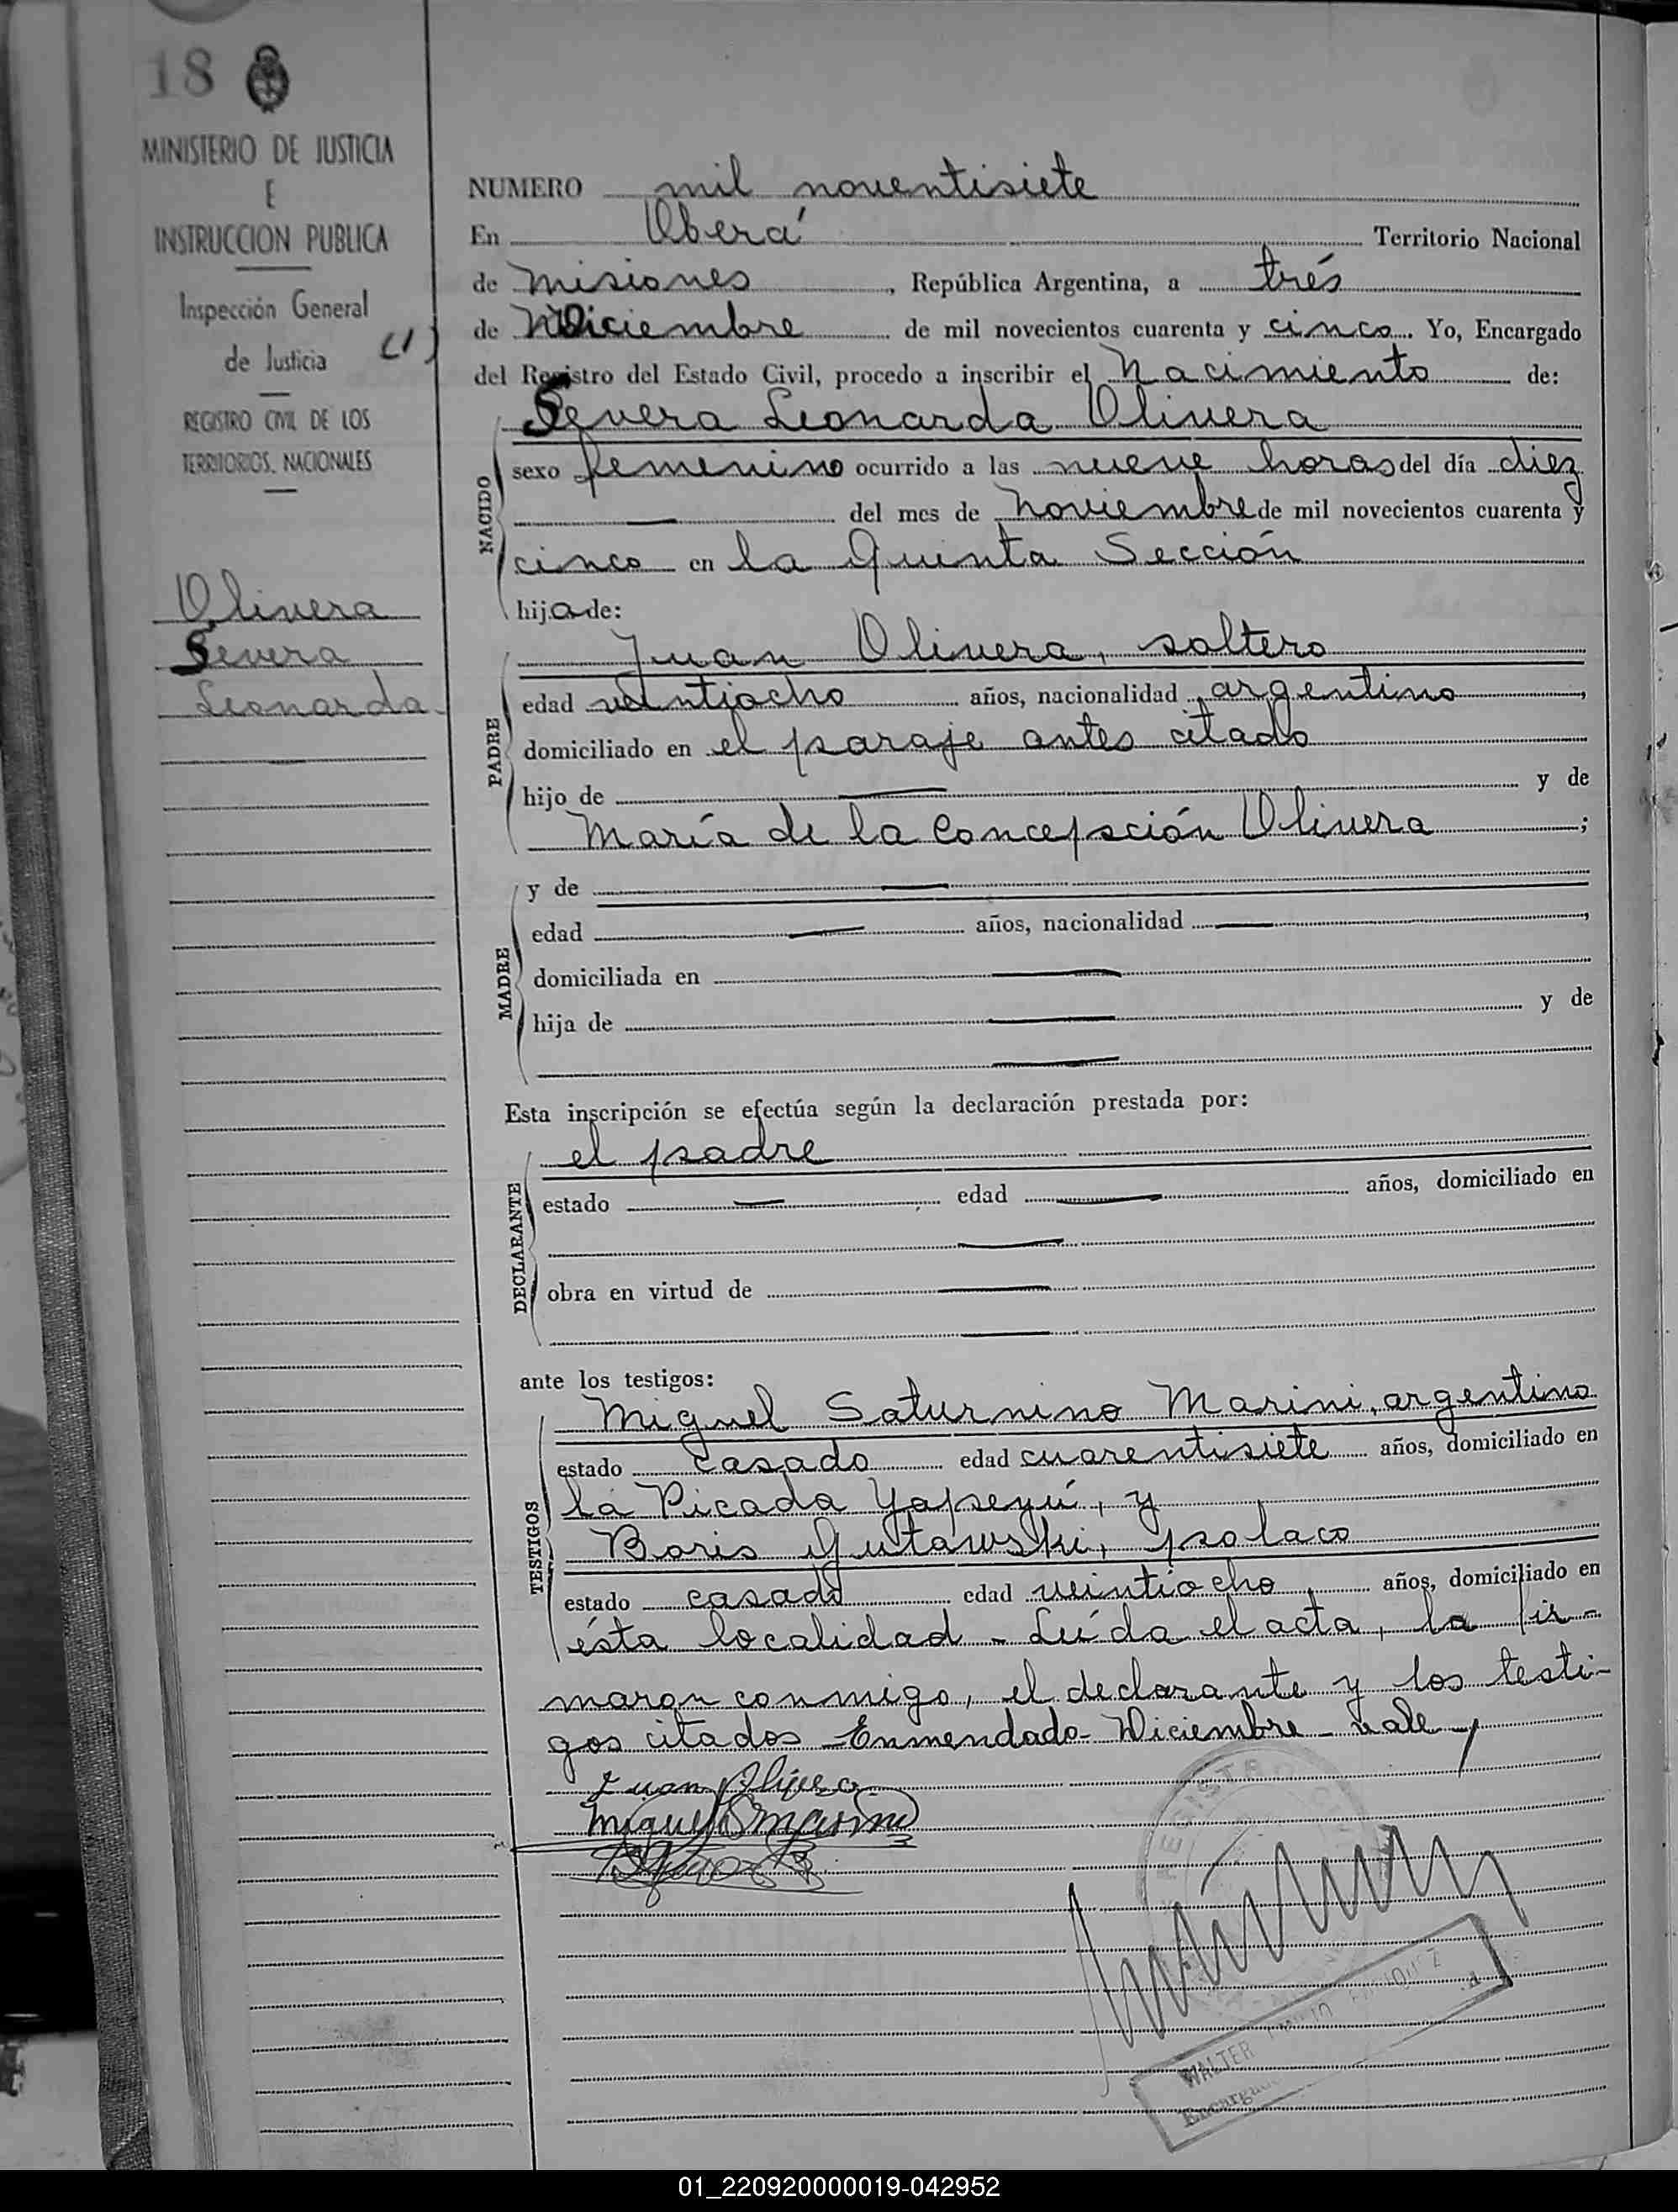 18
MINISTERIO DE JUSTICIA
E
INSTRUCCION PUBLICA
Inspección General
de Justicia (1)
REGISTRO CIVIL DE LOS
TERRITORIOS NACIONALES
Olivera
Severa
Leonarda
NUMERO mil noventisiete
En Oberá Territorio Nacional
de Misiones, República Argentina, a trés
de Diciembre de mil novecientos cuarenta y cinco. Yo, Encargado
del Registro del Estado Civil, procedo a inscribir el Nacimiento de:
NACIDO
Severa Leonarda Olivera
sexo femenino ocurrido a las nueve horas del día diez
del mes de Noviembre de mil novecientos cuarenta y
cinco en la Quinta Sección
hija de:
PADRE
Juan Olivera, soltero
edad veintiocho años, nacionalidad argentino,
domiciliado en el paraje antes citado
hijo de y de
María de la Concepción Olivera;
MADRE
y de
edad años, nacionalidad,
domiciliada en
hija de y de
Esta inscripción se efectúa según la declaración prestada por:
DECLARANTE
el padre
estado edad años, domiciliado en
obra en virtud de
ante los testigos:
TESTIGOS
Miguel Saturnino Marini, argentino
estado casado edad cuarentisiete años, domiciliado en
la Picada Yapeyú, y
Boris Gutawski, polaco
estado casado edad veintiocho años, domiciliado en
ésta localidad - Leída el acta, la fir-
maron conmigo, el declarante y los testi-
gos citados - Enmendado - Diciembre - vale
Juan Olivera
Miguel S Marini
WALTER
Encargado
01_220920000019-042952